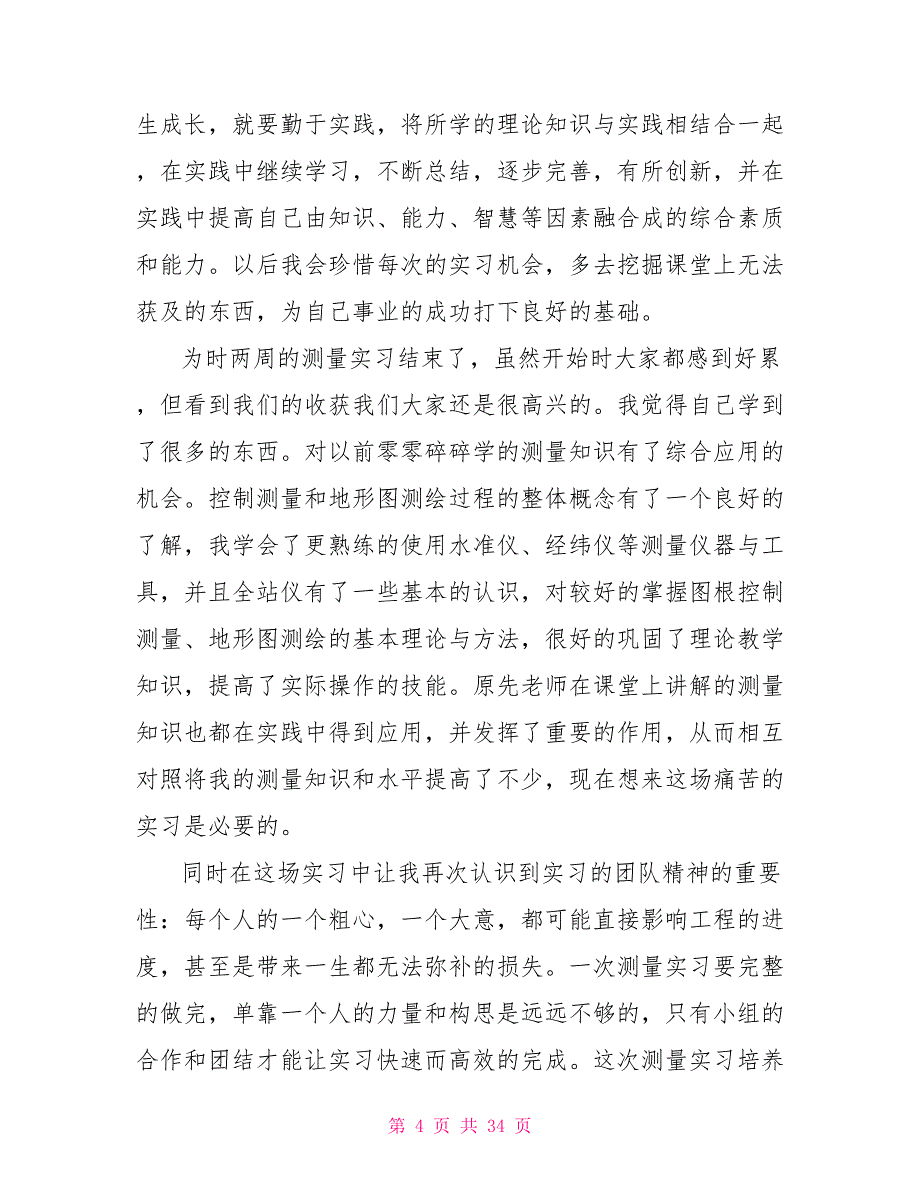 生成长，就要勤于实践，将所学的理论知识与实践相结合一起
，在实践中继续学习，不断总结，逐步完善，有所创新，并在
实践中提高自己由知识、能力、智慧等因素融合成的综合素质
和能力。以后我会珍惜每次的实习机会，多去挖掘课堂上无法
获及的东西，为自己事业的成功打下良好的基础。
为时两周的测量实习结束了，虽然开始时大家都感到好累
，但看到我们的收获我们大家还是很高兴的。我觉得自己学到
了很多的东西。对以前零零碎碎学的测量知识有了综合应用的
机会。控制测量和地形图测绘过程的整体概念有了一个良好的
了解，我学会了更熟练的使用水准仪、经纬仪等测量仪器与工
具，并且全站仪有了一些基本的认识，对较好的掌握图根控制
测量、地形图测绘的基本理论与方法，很好的巩固了理论教学
知识，提高了实际操作的技能。原先老师在课堂上讲解的测量
知识也都在实践中得到应用，并发挥了重要的作用，从而相互
对照将我的测量知识和水平提高了不少，现在想来这场痛苦的
实习是必要的。
同时在这场实习中让我再次认识到实习的团队精神的重要
性：每个人的一个粗心，一个大意，都可能直接影响工程的进
度，甚至是带来一生都无法弥补的损失。一次测量实习要完整
的做完，单靠一个人的力量和构思是远远不够的，只有小组的
合作和团结才能让实习快速而高效的完成。这次测量实习培养
第 4 页 共 34 页